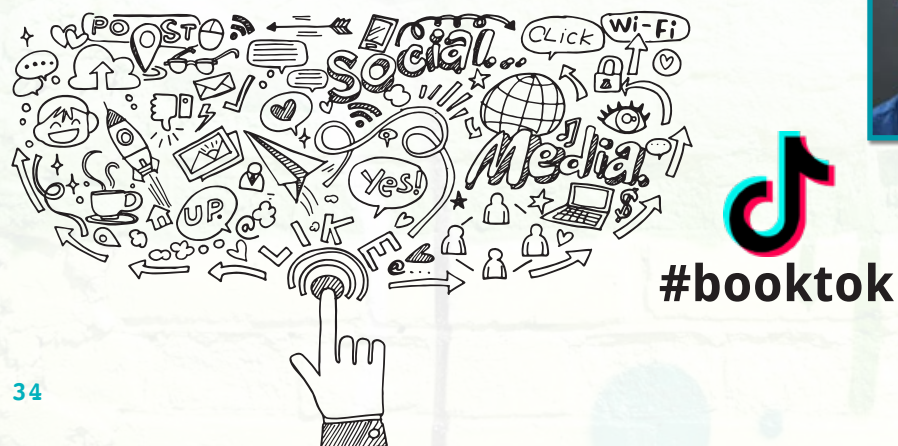 POST
Social...
CLick
Wi-Fi
Media.
Yes!
UP.
@
$
LIKE
@....
#booktok
34